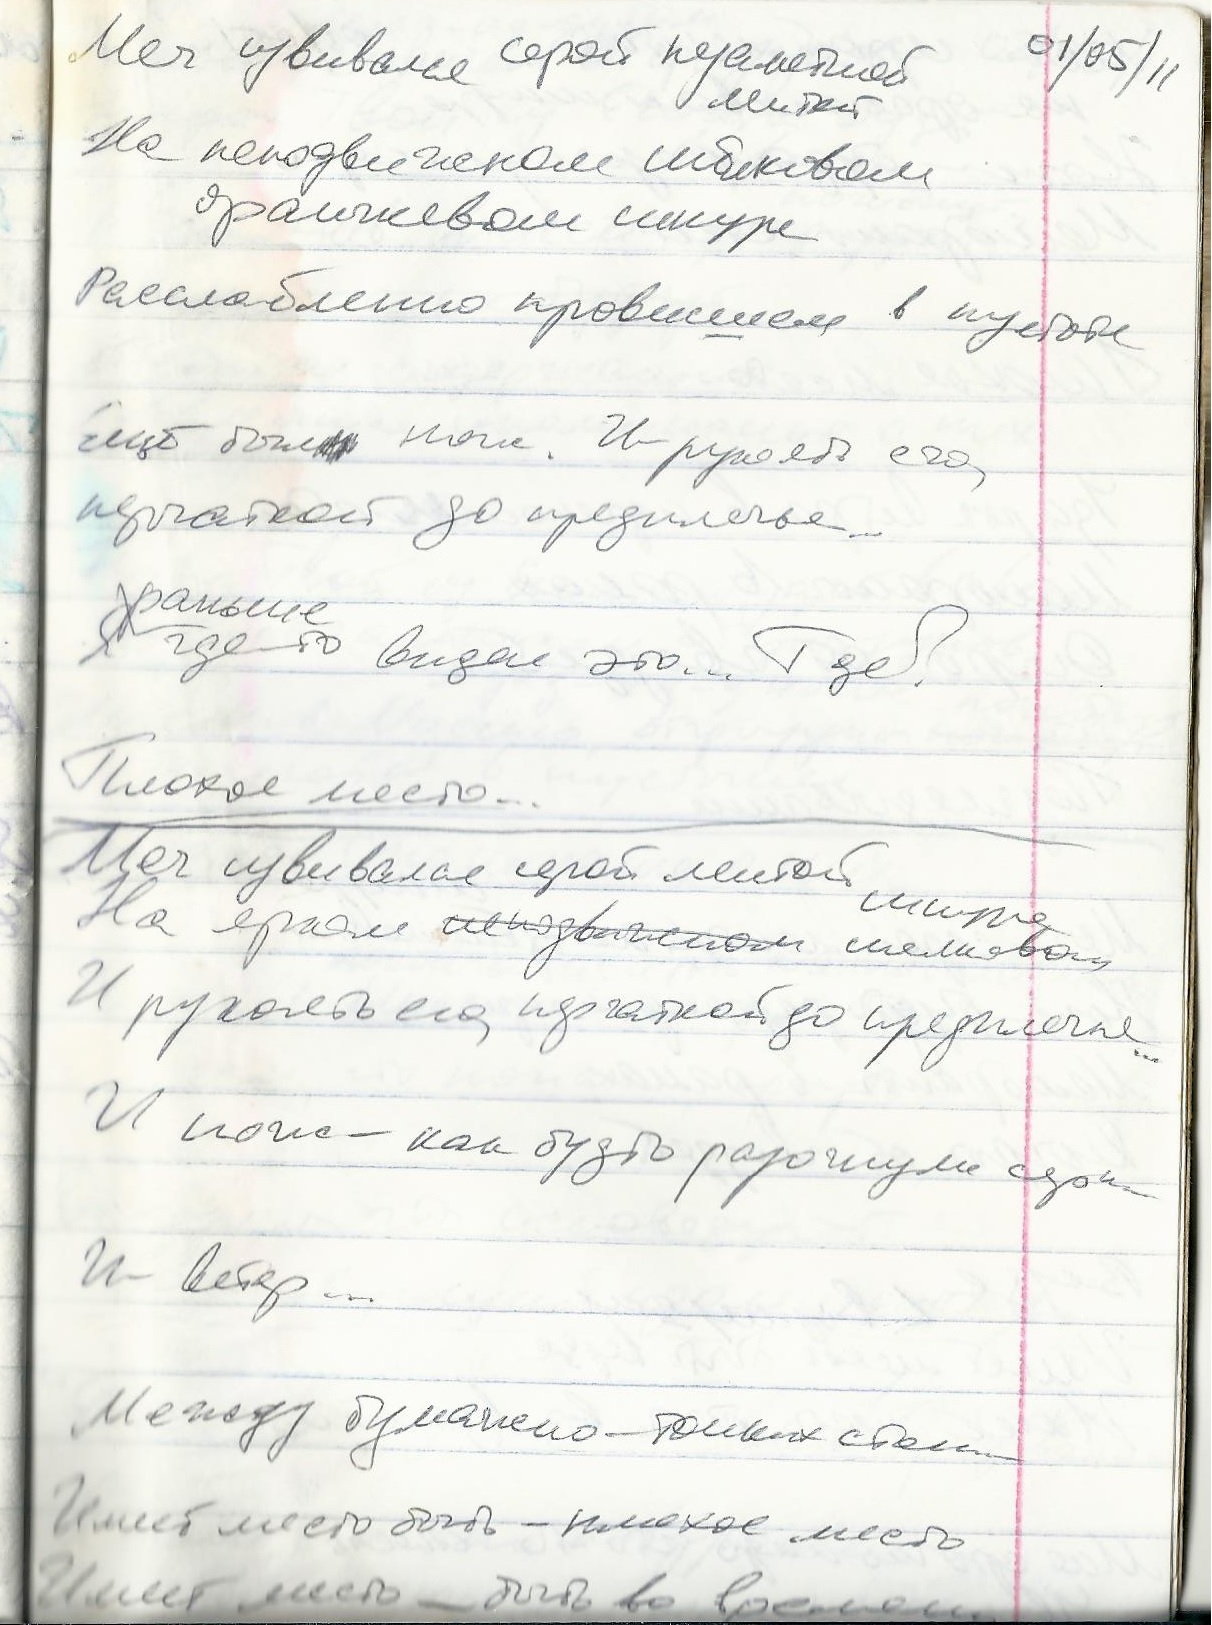 Меч извивался серой незаметной 01/05/11
лентой
На неподвижном шёлковом
оранжевом шнуре
Расслабленно провисшем в пустоте
ещё был нож. И рукоять его,
перчаткой до предплечья...
раньше
Я где-то видел это... Где?
Плохое место...
Меч извивался серой лентой
На ярком неподвижном шелковом шнуре
И рукоять его, перчаткой до предплечья...
И нож – как будто разомкнули
И ветер...
Между бумажно-тонких стен...
Имеет место быть – плохое место
Имеет место – быть во времени...